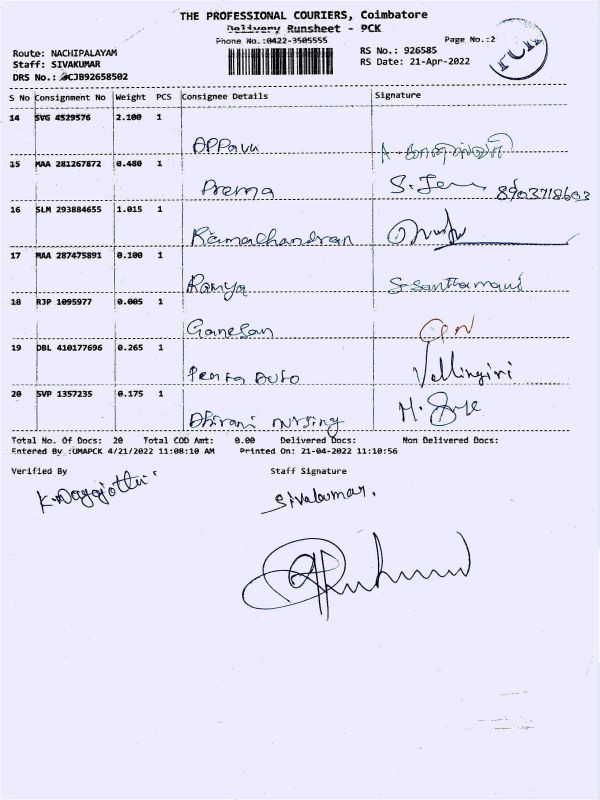 THE PROFESSIONAL COURIERS, Coimbatore
Delivery Runsheet - PCK
Phone No.:0422-3505555
Page No.:2
Route: NACHIPALAYAM
RS No.: 926585
Staff: SIVAKUMAR
RS Date: 21-Apr-2022
DRS No.: CJB92658502
S No Consignment No Weight PCS Consignee Details Signature
14 SVG 4529576 2.100 1
Appavu
15 MAA 281267872 0.480 1
Prema 8903718603
16 SLM 293884655 1.015 1
Ramachandran
17 MAA 287475891 0.100 1
Ramya S-Santhamani
18 RJP 1095977 0.005 1
Ganesan
19 DBL 410177696 0.265 1
Penta Auto Vellingiri
20 SVP 1357235 0.175 1
nursing
Total No. Of Docs: 20 Total COD Amt: 0.00 Delivered Docs: Non Delivered Docs:
Entered By :UMAPCK 4/21/2022 11:08:10 AM Printed On: 21-04-2022 11:10:56
Verified By Staff Signature
Sivakumar.